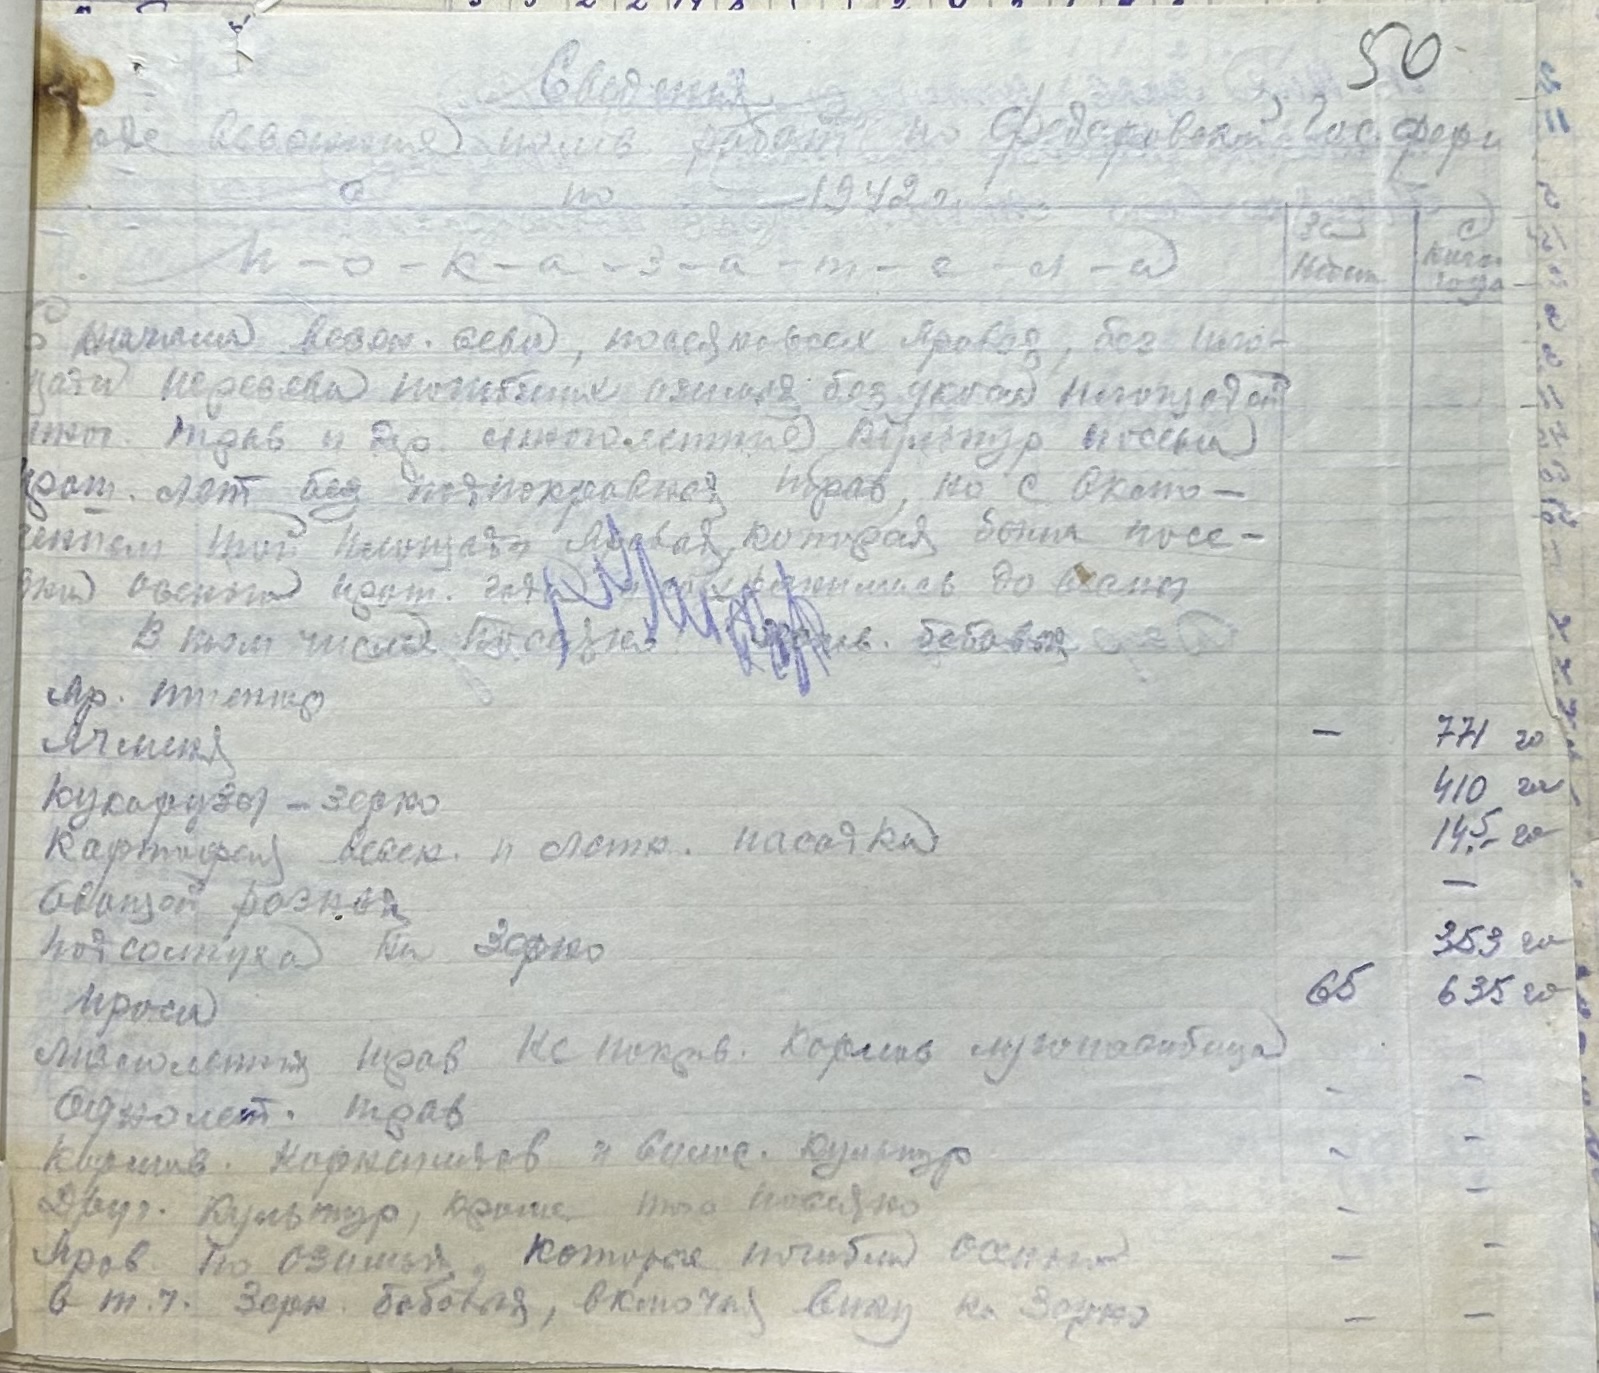 50
Сведения
ходе весенния полев. работ по Федоровской Гос. ферм
1942 г.
П-о-к-а-з-а-т-е-л-и
За
Неделю
С
начала
года
С начала весен. сева, посеяно всех яровых, без пло-
щади пересева погибших озимых без укосн площадей
мног. трав и др. многолетних культур посева
прош. лет без подпокровных трав, но с включе-
нием той площади яровых, которая была посе-
яна осенью прош. года и сохранились до весны
В том числе посеяно зернов. бобовых
Яр. пшеницы
Ячменя
— 771 га
Кукурузы – зерно
410 га
Картофеля весен. и летн. посадки
14,5 га
Овощей разных
—
Подсолнуха на Зерно
353 га
Проса
65 635 га
Многолетних трав
Однолет. трав
— —
Кормов. Корнеплодов и силос. культур
— —
Друг. культур, кроме того посеяно
— —
Яров. по озимым, которые погибли осенью
— —
в т.ч. Зерн. бобовых, включая Вику на Зерно
— —